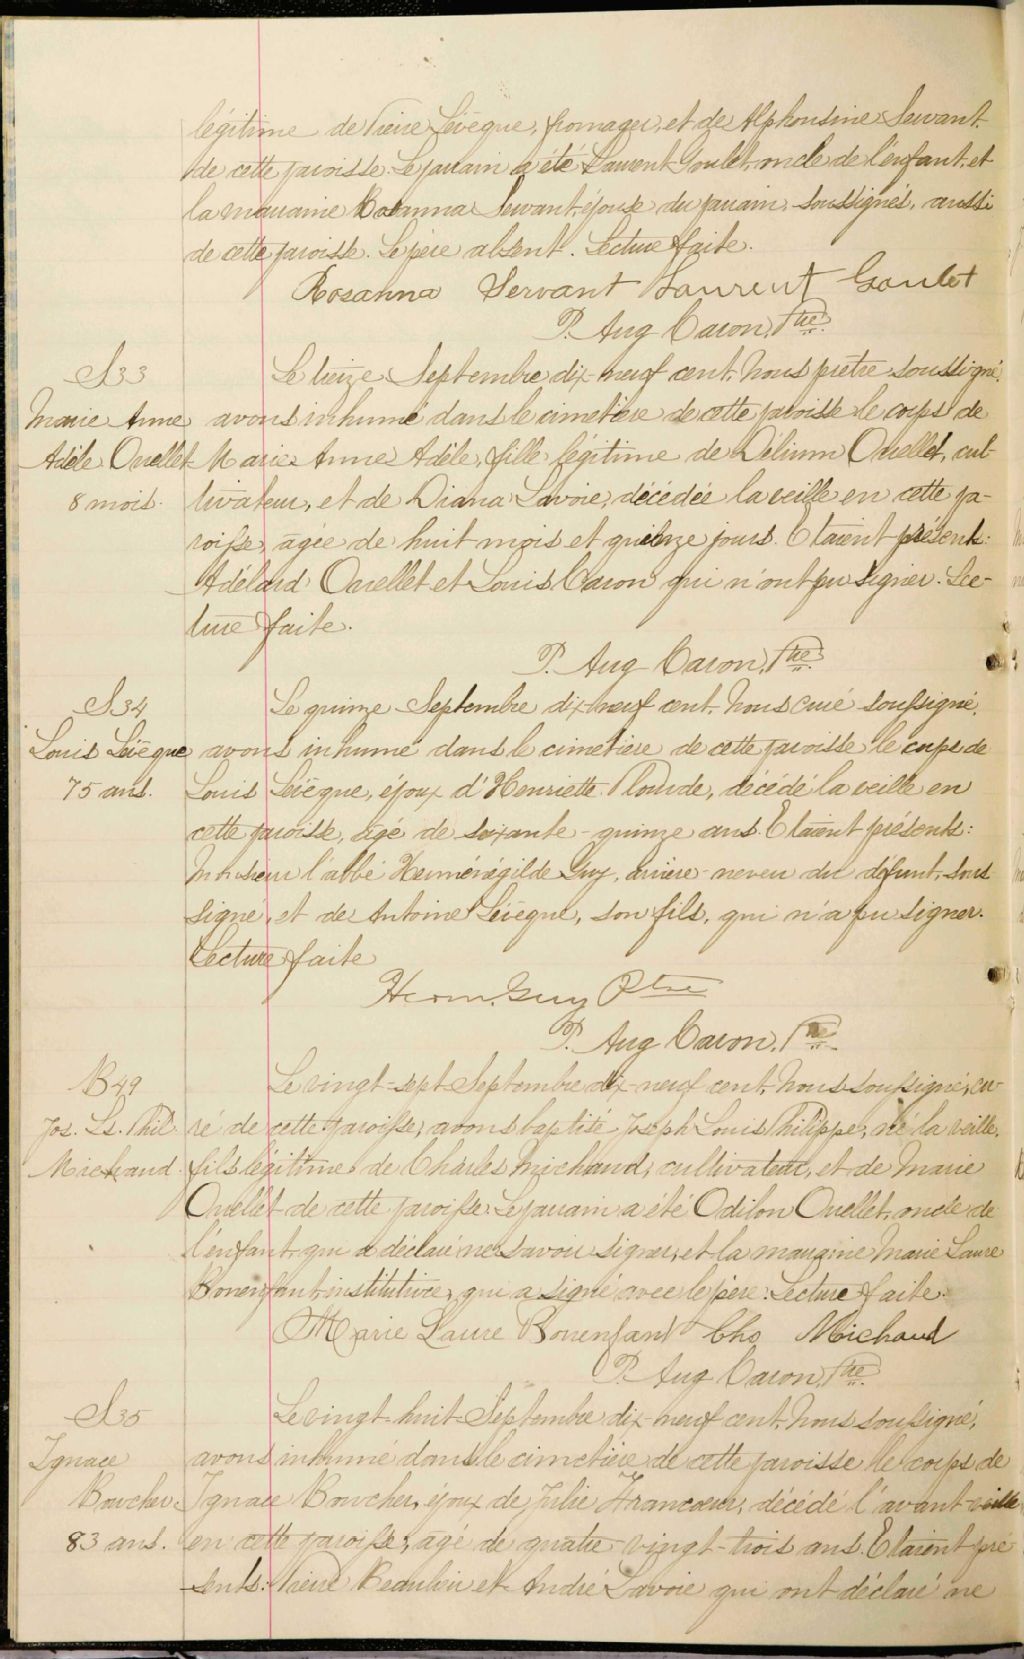 légitime de Pierre Lévêque, fromager, et de Alphonsine Servant
de cette paroisse. Le parrain a été Laurent Goulet, oncle de l'enfant, et
la marraine Rosanna Servant, épouse du parrain, soussignés, aussi
de cette paroisse. Le père absent. Lecture faite.
Rosanna Servant Laurent Goulet
P. Aug Caron, Ptre
S 33
Marie Anne
Adèle Ouellet
8 mois.
Le treize Septembre dix-neuf cent, Nous prêtre soussigné,
avons inhumé dans le cimetière de cette paroisse le corps de
Marie Anne Adèle, fille légitime de Délium Ouellet, cul-
tivateur, et de Diana Lavoie, décédée la veille en cette pa-
roisse, agée de huit mois et quinze jours. Etaient présents:
Adélard Ouellet et Louis Caron qui n'ont pu signer. Lec-
ture faite.
P. Aug Caron, Ptre
S 34
Louis Lévêque
75 ans.
Le quinze Septembre dix-neuf cent, Nous curé soussigné,
avons inhumé dans le cimetière de cette paroisse le corps de
Louis Lévêque, époux d'Henriette Plourde, décédé la veille en
cette paroisse, agé de soixante-quinze ans. Etaient présents:
Monsieur l'abbé Herménégilde Guy, arrière-neveu du défunt, sous
signé, et de Antoine Lévêque, son fils, qui n'a pu signer.
Lecture faite
Herm. Guy Ptre
P. Aug Caron, Ptre
B 49
Jos. Ls. Phil.
Michaud
Le vingt-sept Septembre dix-neuf cent, Nous soussigné, cu-
ré de cette paroisse, avons baptisé Joseph Louis Philippe, né la veille,
fils légitime de Charles Michaud, cultivateur, et de Marie
Ouellet de cette paroisse. Le parrain a été Odilon Ouellet, oncle de
l'enfant qui a déclaré ne savoir signer, et la marraine Marie Laure
Bonenfant institutrice, qui a signé avec le père. Lecture faite.
Marie Laure Bonenfant Chs Michaud
P. Aug Caron, Ptre
S 35
Ignace
Boucher
83 ans.
Le vingt-huit Septembre dix-neuf cent, Nous soussigné,
avons inhumé dans le cimetière de cette paroisse le corps de
Ignace Boucher, époux de Julie Francoeur, décédé l'avant-veille
en cette paroisse, agé de quatre-vingt-trois ans. Etaient pré
sents: Pierre Beaulieu et André Lavoie qui ont déclaré ne